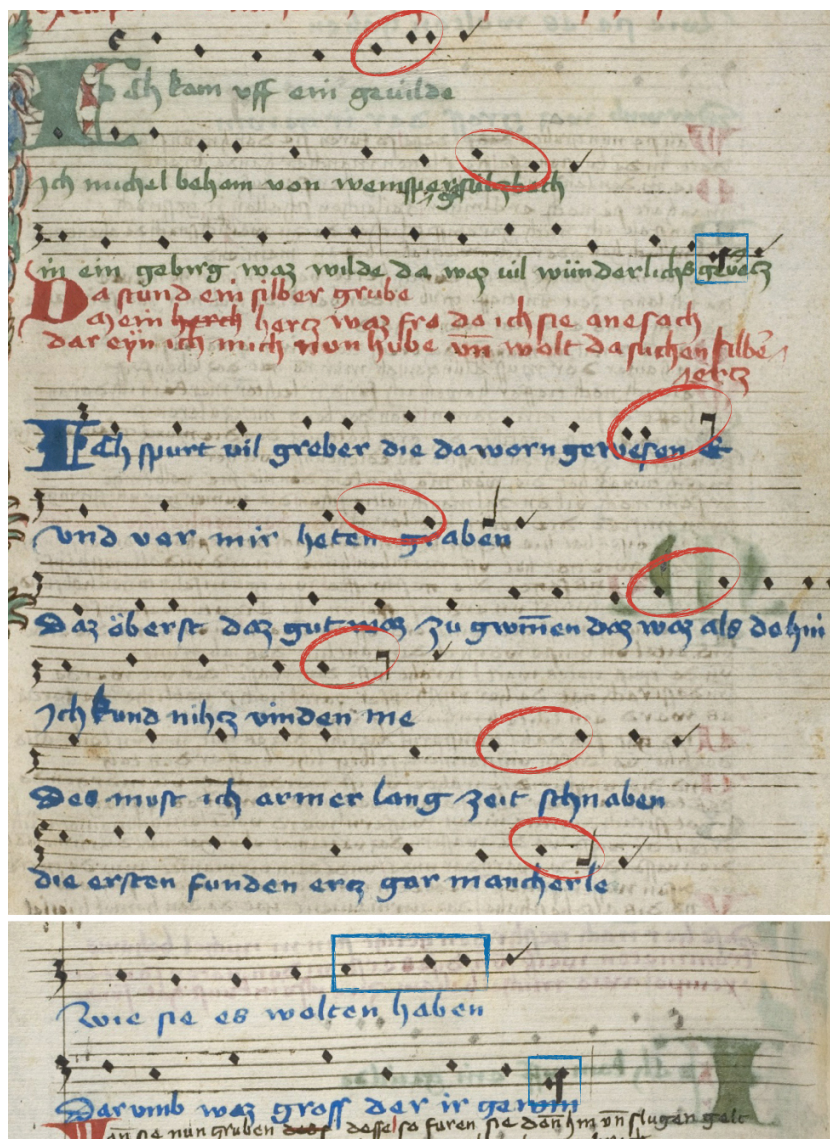 Ich kam vff ein gevilde
ich michel beham von weinsperg sultzbach
in ein gebirg waz wilde da waz vil wünderlichs gevertz
Da stund ein silber grube
Mein hertz waz fro do ich sie anesach
dar eyn ich mich nun hube vn̄ wolt da suchen silber
ertz
Ich spurt vil greber die da worn gewesen E
vnd vor mir heten graben
Daz öberst daz gut waz zu gwinnen daz waz als do hin
Ich kund nihtz vinden me
des must ich armer lang zeit schnaben
die ersten funden ertz gar mancherle
wie sie es wolten haben
Darvmb waz gross der ir gewin
sie nun gruben desselso furen sie den hin vn̄ slugen gelt